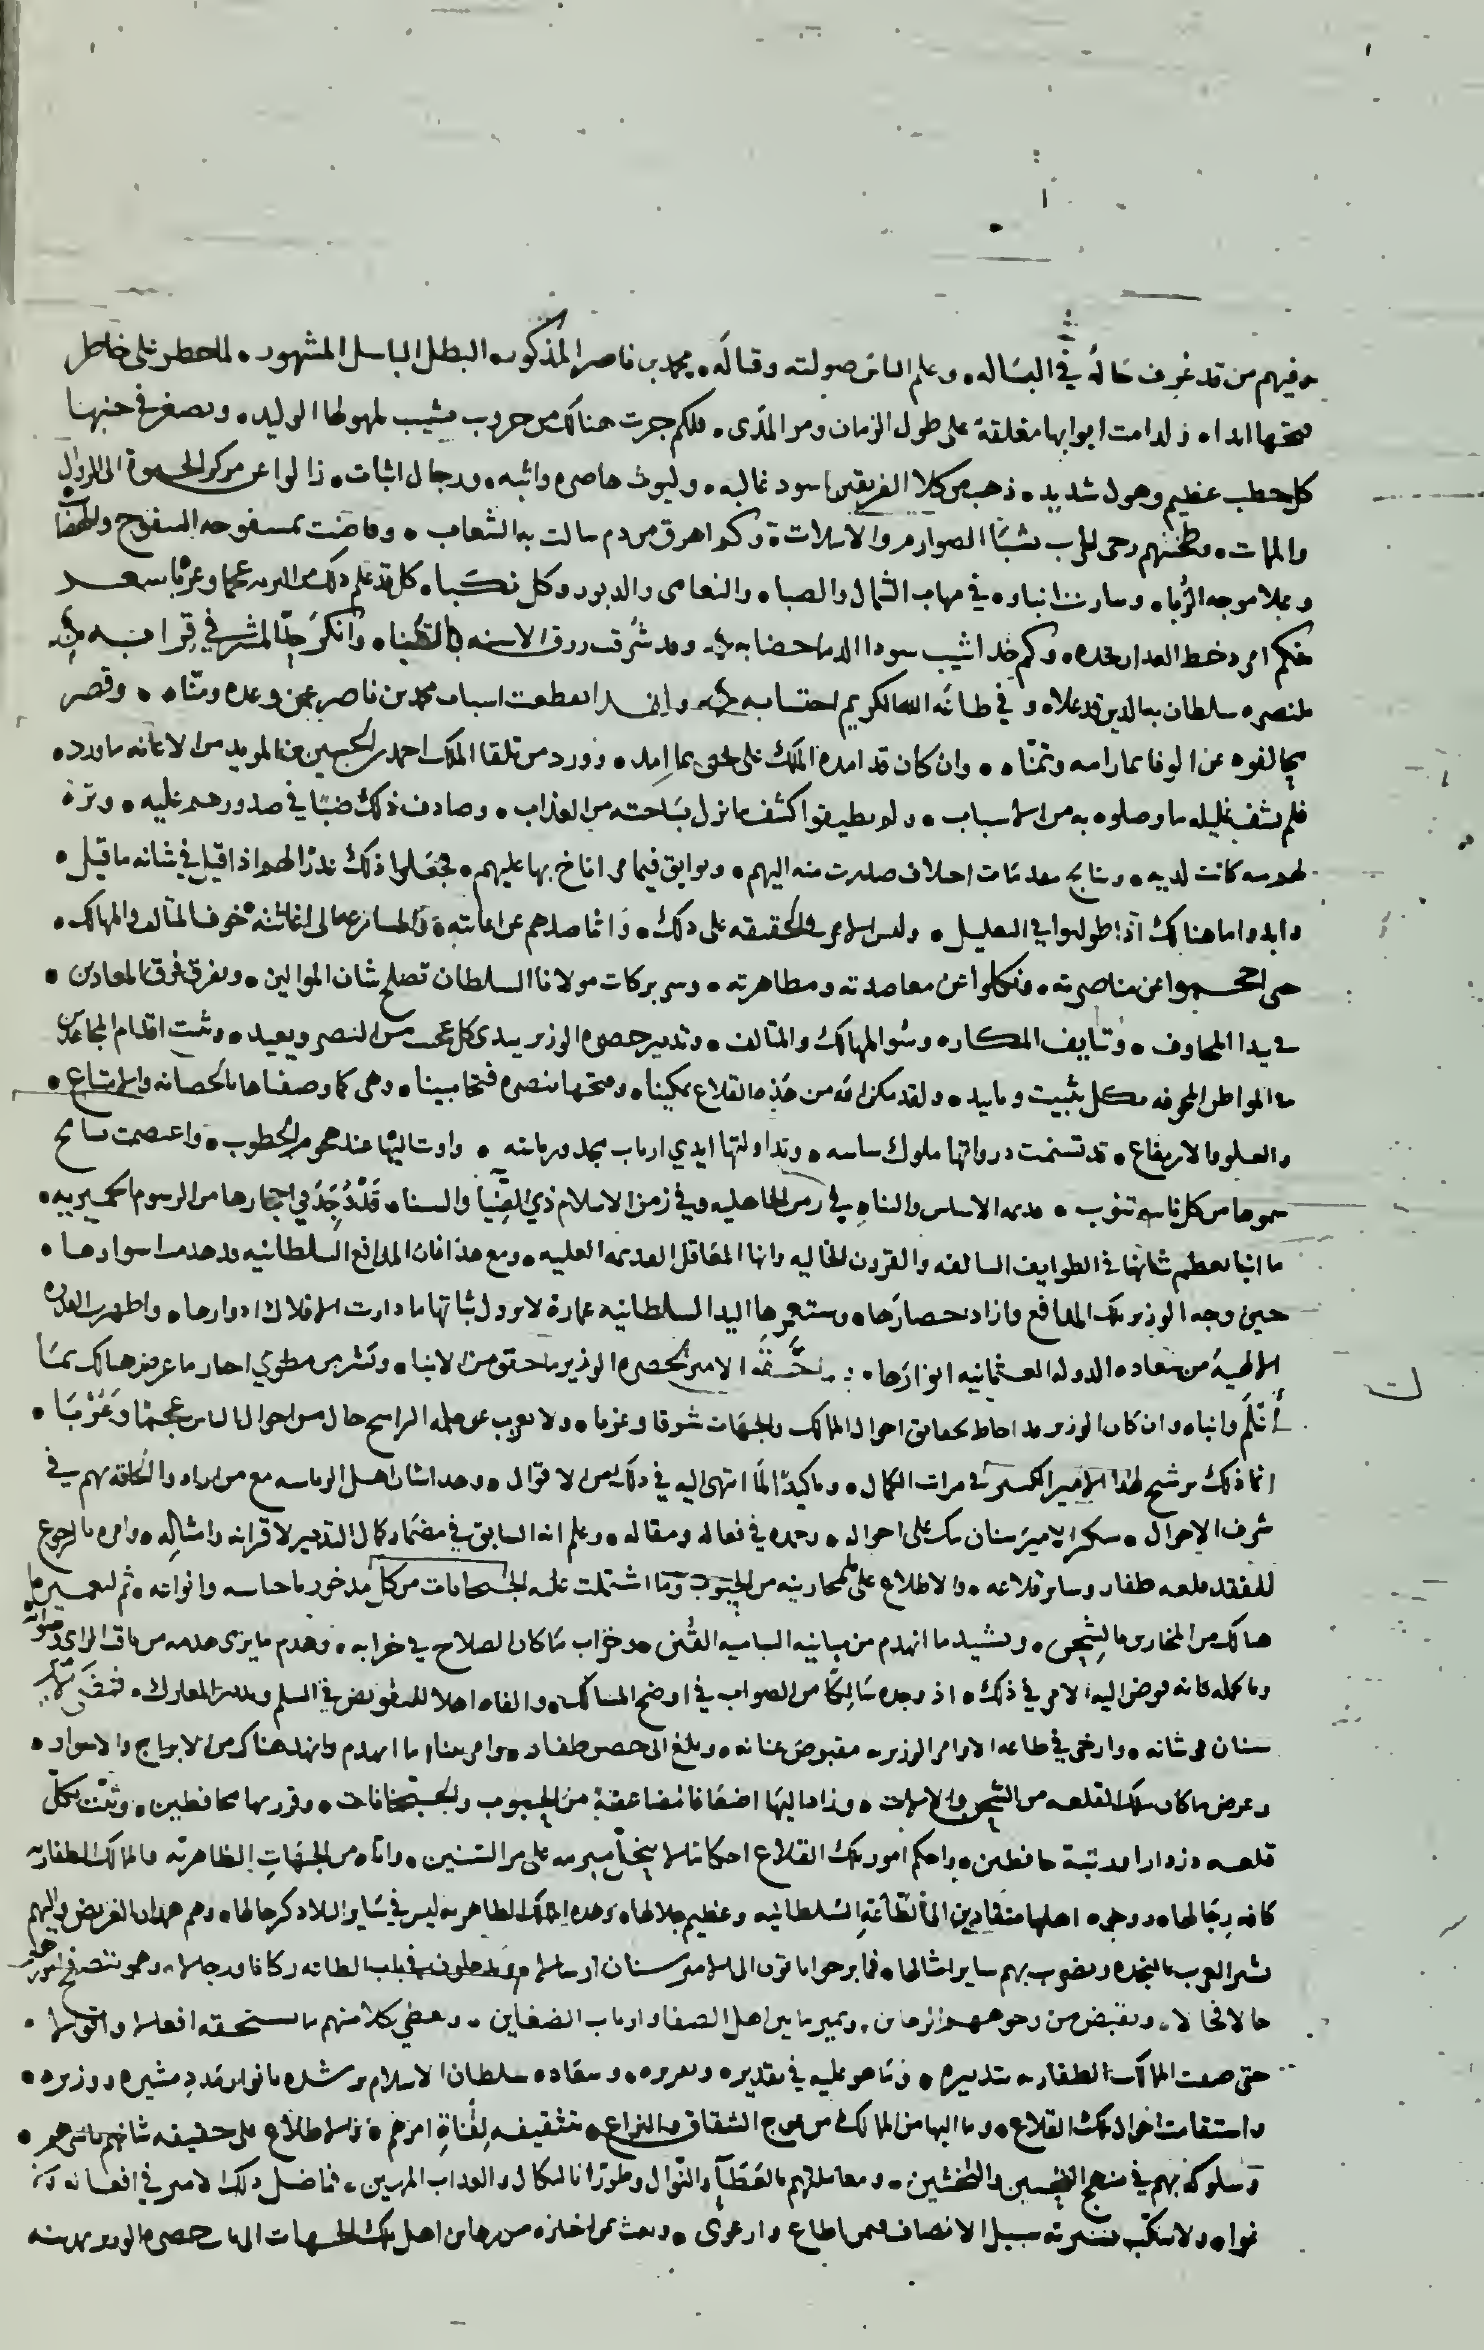 وفيهم من قد عرف حاله في البساله • وعلم الناس صولته وقتاله • محمد بن ناصر المذكور • البطل الباسل المشهور • على خاطر
ابدا • ولدامت ابوابها مغلقة على طول الزمان ومر المدى • فلكم جرت هناك من حروب يشيب لهولها الوليد • ويصغر في جنبها
كل خطب عظيم وهول شديد • ذهب من كلا الفريقين اسود غالبه • وليوث هاصره واثبه • ورجال اثبات • زالوا عن مركز الحيوة الى الزوال
والممات • وطحنتهم رحى الحرب بشبا الصوارم والاسلات • وكم اهرق من دم سالت به الشعاب • وفاضت بمسفوحه السفوح
وعلا موجه الربا • وسارت انباه في مهاب الشمال والصبا • والنعامى والدبور وكل نكبا • كل قد علم ذلك من البريه عجما وعربا
فكم امرد خط العذار بخده • وكم خد اشيب سودا الدما خضابه • وقد شرقت زرق الاسنه بالقنا • وانكر حد المشرفي قرابه
لنصره سلطان به الدين قد علا • وفي طاعة الله الكريم احتسابه • انقطعت اسباب محمد بن ناصر عمن وعده ومناه • وقصر
مخالفوه عن الوفا بما رامه وتمناه • وان كان قد امده الملك على يحيى بما امد • وورد من تلقا الملك احمد بن الحسين بن المويد من الاعانه ما ورد •
فلم يشف غليله ما وصلوه به من الاسباب • ولم يطيقوا كشف ما نزل بساحته من العذاب • وصادف ذلك ضبا في صدورهم عليه • وتره
كانت لديه • ونتايج مقدمات اخلاف صدرت منه اليهم • وبوايق فيما مر اناخ بها عليهم • فجعلوا ذلك عذرا لهم اذا قيل في شانه ما قيل •
وابدوا ما هنالك اذا طولبوا في التعليل • وليس الامر في الحقيقه على ذلك • وانما صدهم عن اعانته • والمسارعه الى اغاثته خوف المتالف والمهالك •
حتى احجموا عن مناصرته • ونكلوا عن معاضدته ومظاهرته • وسر بركات مولانا السلطان تصلح شان الموالين • وتفرق فرق المعادين •
في بيدا المخاوف • وتنايف المكاره وسو المهالك والمتالف • وتدبير حضرة الوزير يبدي كل عجب من النصر ويعيد • وثبت اقدام المجاهدين
في المواطن المخوفه بكل تثبيت وتاييد • ولقد مكن الله من هذه القلاع تمكينا • وفتحها بنصره فتحا مبينا • وهي كما وصفناها بالحصانه والامتناع •
والعلو والارتفاع • قد تسنمت درواتها ملوك ساسه • وتداولتها ايدي ارباب مجد ورياسه • واوت اليها عند هجوم الخطوب • واعتصمت بشامخ
سموها من كل نايبه تنوب • قديمه الاساس والبناء في زمن الجاهليه وفي زمن الاسلام ذي الضيا والسنا • قد وجد في احجارها من الرسوم الحميريه •
ما انبا بعظم شانها في الطوايف السالفه والقرون الخاليه وانها المعاقل القديمه العليه • ومع هذا فان المدافع السلطانيه قد هدمت اسوارها •
حين وجه الوزير تلك المدافع وازاد حصارها • وستعمرها اليد السلطانيه عمارة لا يزول ثباتها ما دارت الافلاك ادوارها • واظهرت العنايه
الالهية من سعاده الدوله العثمانيه انوارها • الامير لحضرة الوزير ما حقق من الانبا • ونشر من مطوي اخبار ما عرفه هنالك بما
اعلم وانباه • وان كان الوزير قد احاط بحقايق احوال الممالك والجهات شرقا وغربا • ولا يعزب عن علمه الراسخ حال من احوال الناس عجما وعربا •
انما ذلك ترشيح لهذا الامير الكبير في مراتب الكمال • وتاكيدا لما انتهى اليه في ذلك من الاقوال • وهذا شان اهل الرياسه مع من ارادوا الحاقه بهم في
شرف الاحوال • شكر الامير سنان بيك على احواله • وحمده في فعاله ومقاله • وعلم انه السابق في مضمار كمال التدبير لاقرانه وامثاله • وامره بالرجوع
لتفقد قلعه ظفار وساير قلاعه • والاطلاع على مخازينه من الحبوب وما اشتملت عليه الجبخانات من كل مدخور باجناسه وانواعه • ثم
هنالك من المخازين بالشحن • وتشييد ما انهدم من مبانيه الساميه القنن • وخراب ما كان الصلاح في خرابه • وهدم ما يرى هدمه من ثاقب الراي وصوابه
وبالجمله فانه فوض اليه الامر في ذلك • اذ وجده سالكا من الصواب في اوضح المسالك • والفاه اهلا للتفويض في السلم والمعارك • فمضى الامير
سنان في شانه • وارخى في طاعه الاوامر الوزيريه مقبوض عنانه • وبلغ الى حصن ظفار • وامر ببناء ما انهدم وانهد هنالك من الابراج والاسوار •
وعرض ما كان بتلك القلعه من الشحن والالات • وزاد اليها اضعافا مضاعفة من الحبوب والجبخانات • وقرر بها محافظين • وثبت بكل
قلعه دزدارا ورتبة حافظين • واحكم امور تلك القلاع احكاما لا ينحل مبرمه على مر السنين • واتاه من الجهات الظاهريه والممالك الظفاريه
كافه رجالها • ووجوه اهلها منقادين الى الطاعة السلطانيه وعظيم جلالها • وهذه الممالك الظاهريه ليس في ساير البلاد كرجالها • وهم همدان العريض واليهم
تشير العرب بالنجده ويضرب بهم ساير امثالها • فما برحوا ياتون الى الامير سنان ارسالا • ويدخلون في باب الطاعه ركابا ورجالا • وهو يتصفح امورهم
حالا فحالا • ويقبض من وجوههم الرهاين • ويميز ما بين اهل الصفا وارباب الضغاين • ويعطي كلا منهم ما يستحقه افعالا واقوالا •
حتى صفت الممالك الظفاريه بتدبيره • وما هو عليه في تقديره وتقريره • وسعاده سلطان الاسلام ترشده بانوار مدد مشيره ووزيره •
واستقامت احوال تلك القلاع • وما اليها من الممالك من عوج الشقاق والنزاع • بتثقيفه لقناة امرهم • والاطلاع على حقيقه شانهم
وسلوكه بهم في منهج التحسين والتخشين • ومعاملتهم بالعطا والنوال وطورا بالنكال والعذاب المهين • فما ضل ذلك الامير في افعاله وما
غوا • ولا نكب بسيرته سبيل الانصاف فيمن اطاع وارعوى • وبعث بمن اختاره من رهاين اهل تلك الجهات الى باب حضرة الوزير بمدينه